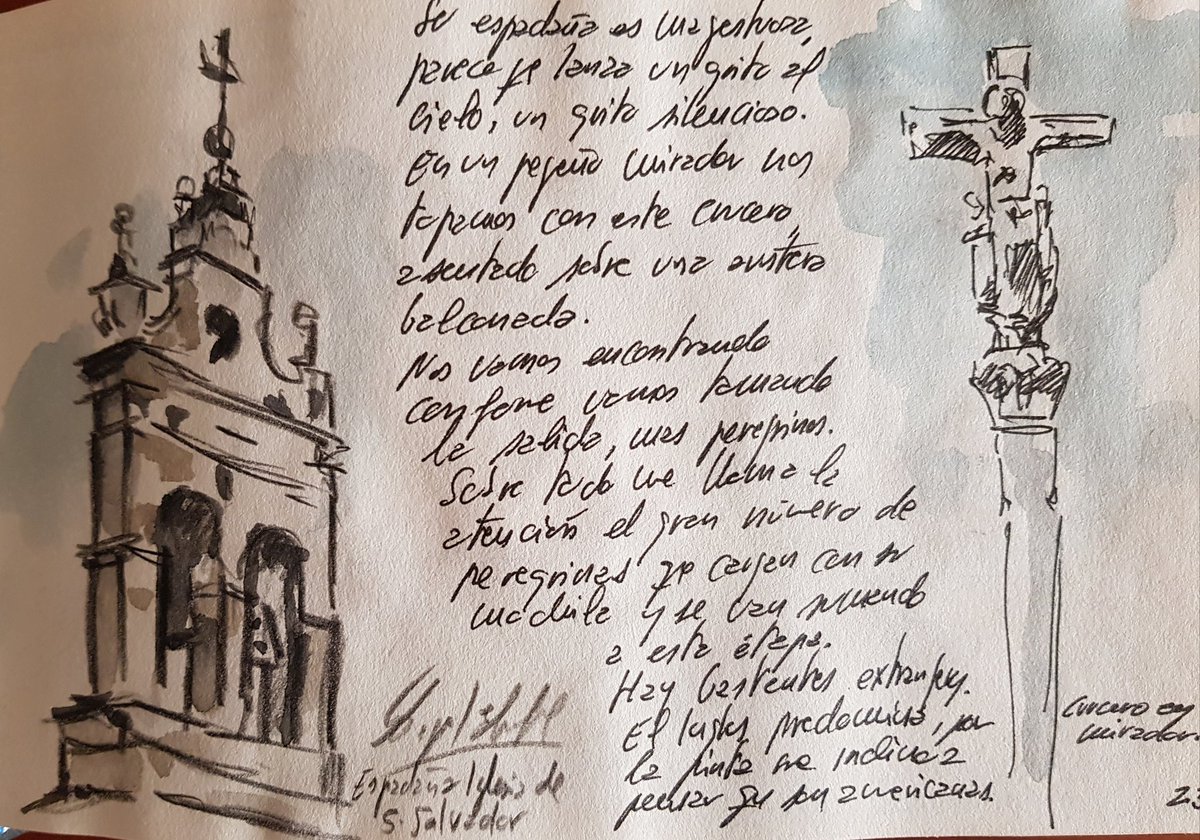 Su espadaña es magestuosa,
parece qe lanza un grito al
cielo, un grito silencioso.
En un peqeño mirador nos
topamos con este crucero,
asentado sobre una austera
balconada.
Nos vamos encontrando
conforme vamos tomando
la salida, mas peregrinos.
Sobre todo me llama la
atención el gran número de
peregrinas qe cargan con su
mochila y se van sumando
a esta etapa.
Hay bastantes extranjeros.
El inglés predomina, por
la pinta me inclino a
pensar qe son americanas.
Espadaña Iglesia de
S. Salvador
Crucero en
mirador.